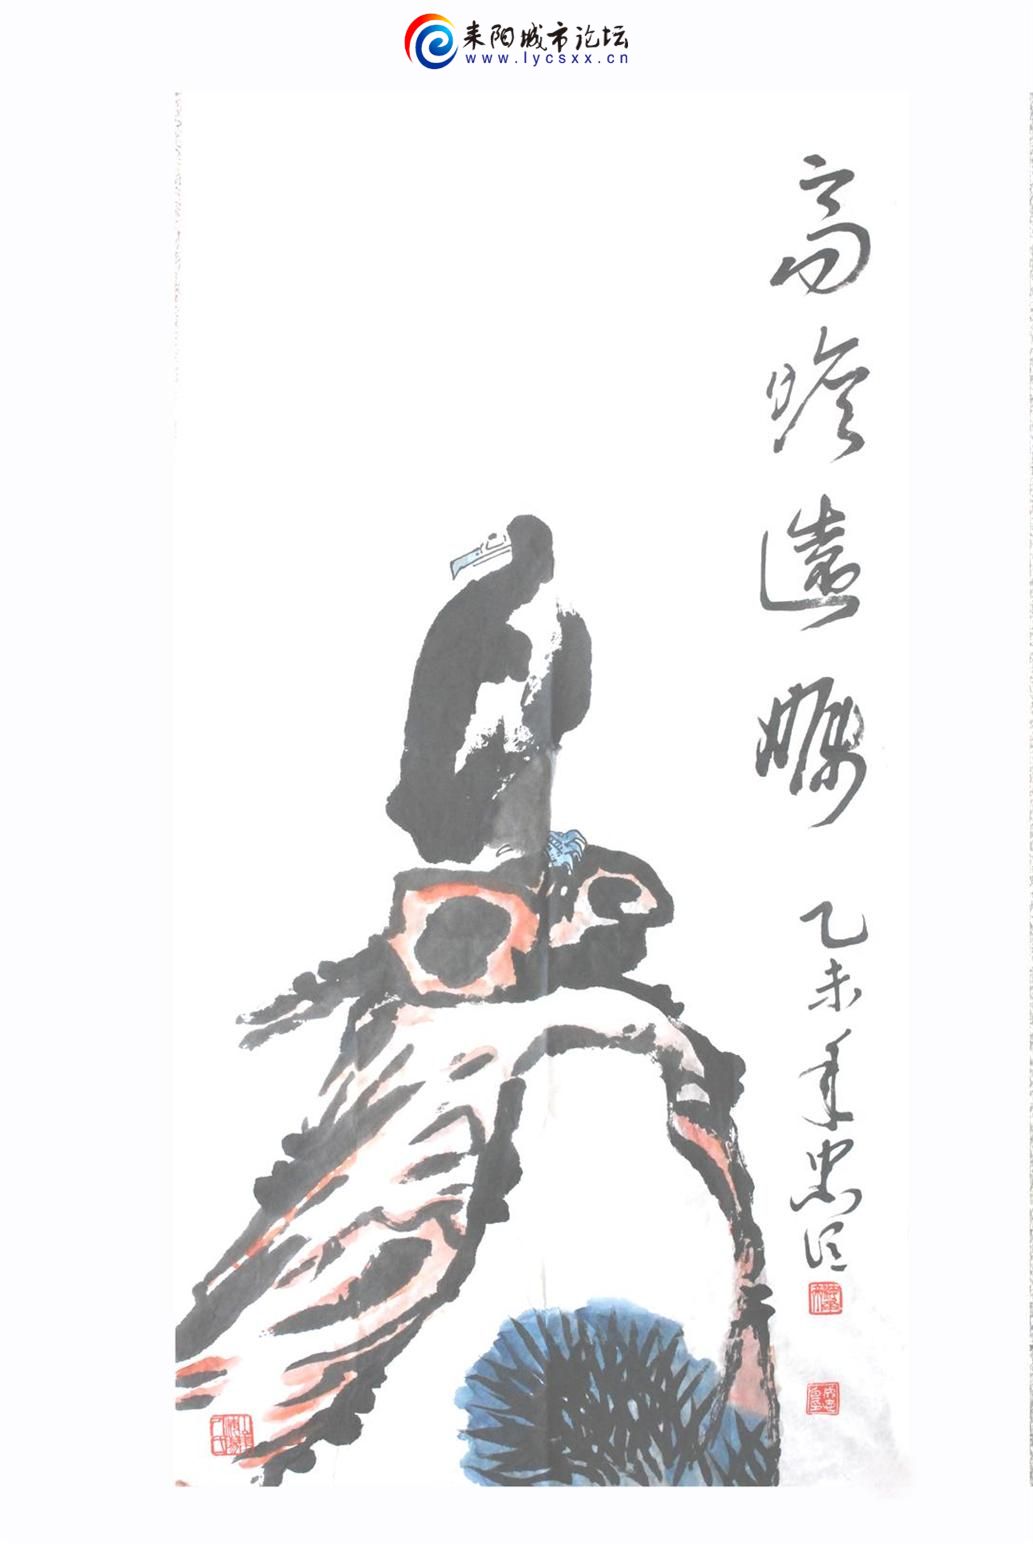 耒阳城市论坛
www.lycsxx.cn
高瞻遠矚
乙未年忠